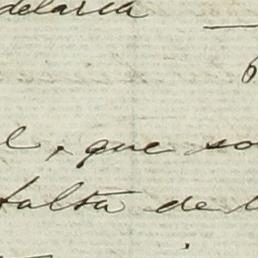 delaria
l, que so
falta de l